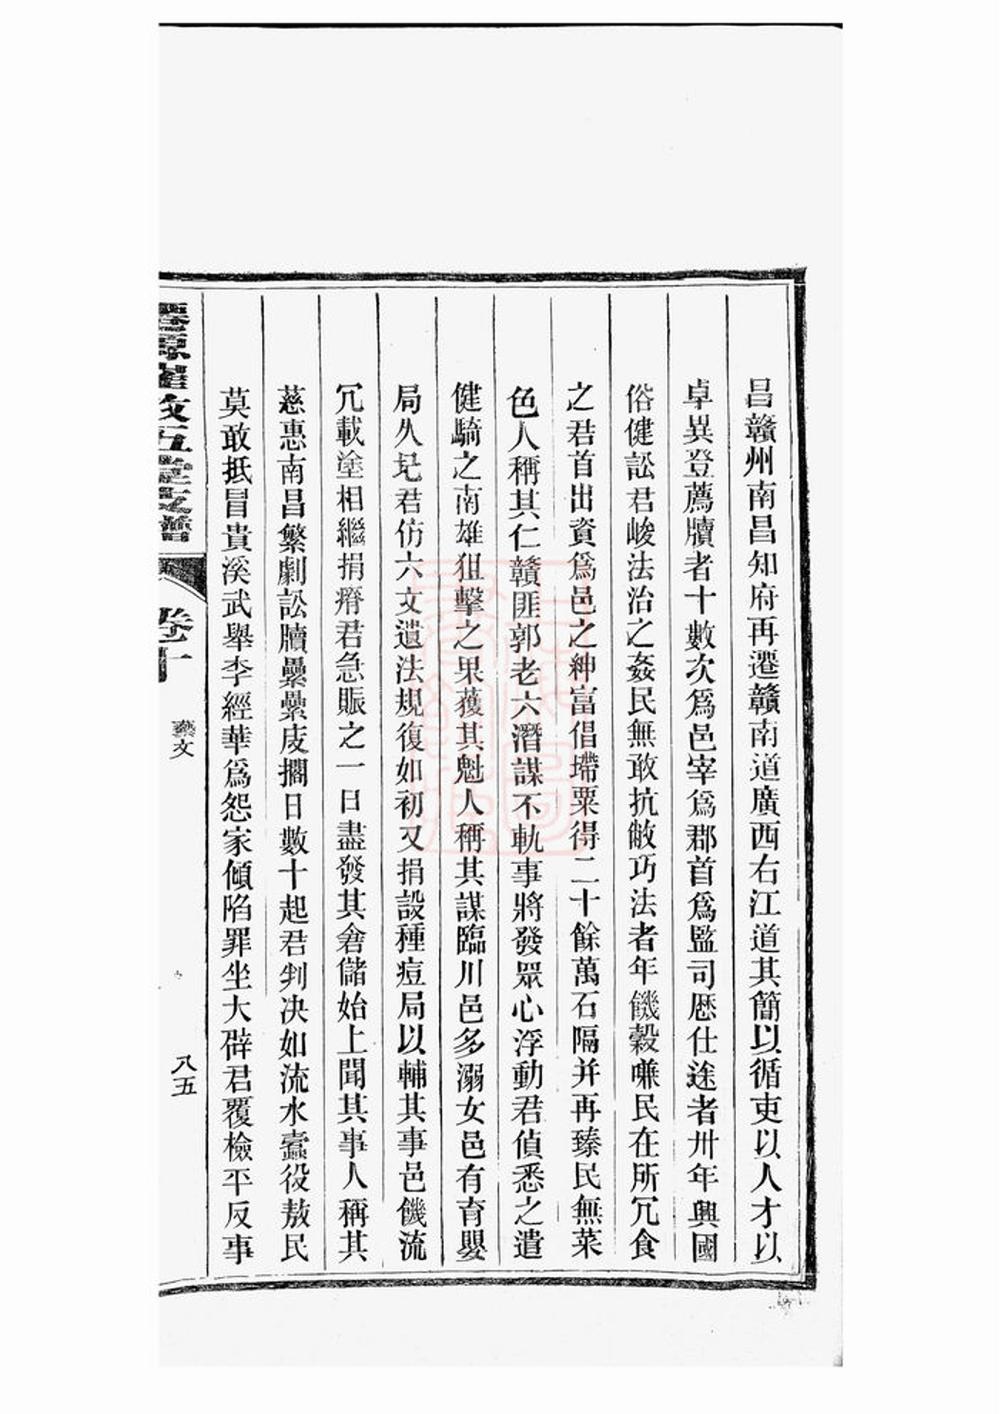 昌贛州南昌知府再遷贛南道廣西右江道其簡以循吏以人才以
卓異登薦牘者十數次爲邑宰爲郡首爲監司歷仕途者卅年興國
俗健訟君峻法治之姦民無敢抗敵巧法者年饑穀嗛民在所冗食
之君首出資爲邑之紳富倡墆粟得二十餘萬石隔并再臻民無菜
色人稱其仁贛匪郭老六潛謀不軌事將發眾心浮動君偵悉之遣
健騎之南雄狙擊之果蒦其魁人稱其謀臨川邑多溺女邑有育嬰
局久圮君仿六文遺法規復如初又捐設種痘局以輔其事邑饑流
冗載塗相繼捐瘠君急賑之一日盡發其倉儲始上聞其事人稱其
慈惠南昌繁劇訟牘纍纍庋擱日數十起君判决如流水蠹役敖民
莫敢抵冒貴溪武舉李經華爲怨家傾陷罪坐大辟君覆檢平反事
敦五堂支譜
卷十
藝文
八五